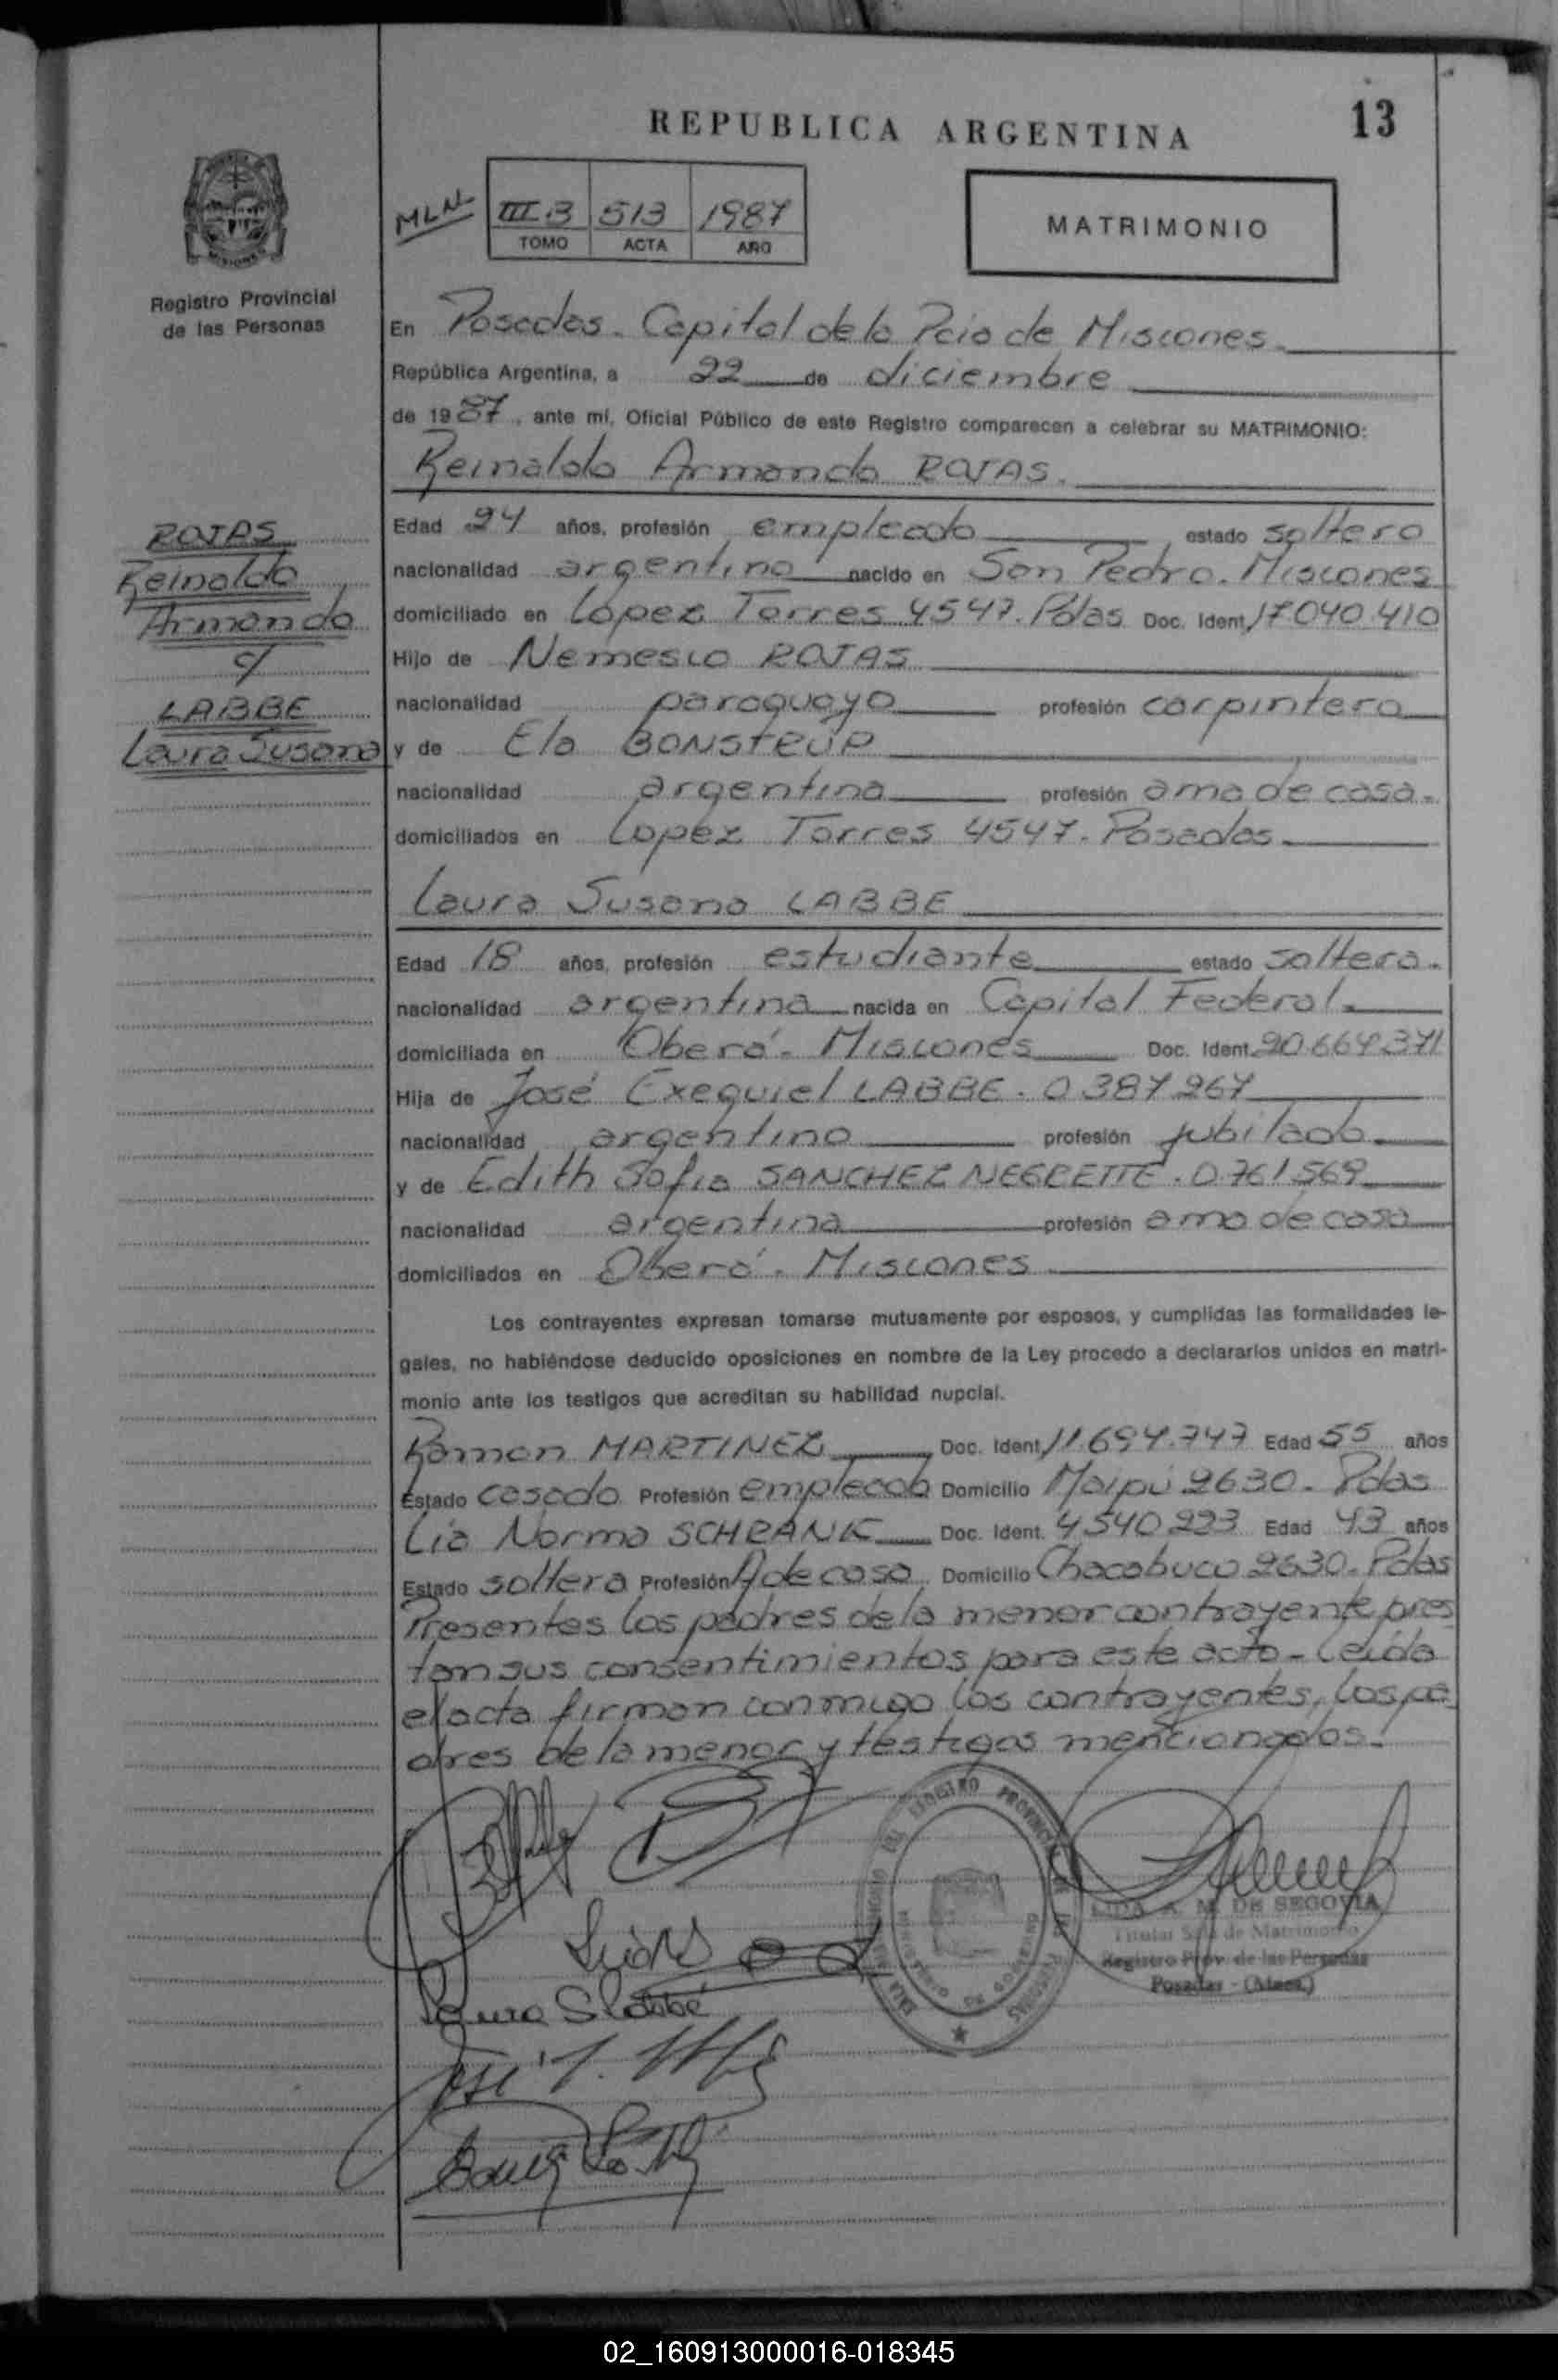 13
REPUBLICA ARGENTINA
MLNL
III.B 513 1987
TOMO ACTA AÑO
MATRIMONIO
Registro Provincial
de las Personas
En Posadas. Capital de la Pcia de Misiones.
República Argentina, a 22 de diciembre
de 1987, ante mí, Oficial Público de este Registro comparecen a celebrar su MATRIMONIO:
Reinaldo Armando ROJAS.
ROJAS
Reinaldo
Armando
c/
LABBE
Laura Susana
Edad 24 años, profesión empleado estado soltero
nacionalidad argentino nacido en San Pedro. Misiones
domiciliado en López Torres 4547. Pdas Doc. Ident. 17.040.410
Hijo de Nemesio ROJAS
nacionalidad paraguayo profesión carpintero
y de Ela BONSTRUP
nacionalidad argentina profesión ama de casa.
domiciliados en Lopez Torres 4547. Posadas
Laura Susana LABBE
Edad 18 años, profesión estudiante estado soltera.
nacionalidad argentina nacida en Capital Federal.
domiciliada en Oberá. Misiones Doc. Ident. 20.664.371
Hija de José Exequiel LABBE. 0.387.267
nacionalidad argentino profesión jubilado
y de Edith Sofia SANCHEZ NEGRETTE. 0.761.569
nacionalidad argentina profesión ama de casa
domiciliados en Oberá. Misiones
Los contrayentes expresan tomarse mutuamente por esposos, y cumplidas las formalidades le-
gales, no habiéndose deducido oposiciones en nombre de la Ley procedo a declararlos unidos en matri-
monio ante los testigos que acreditan su habilidad nupcial.
Ramon MARTINEZ Doc. Ident. 11.694.747 Edad 55 años
Estado casado Profesión empleado Domicilio Maipú 2630. Pdas
Lia Norma SCHRANK Doc. Ident. 4.540.223 Edad 43 años
Estado soltera Profesión A de casa Domicilio Chacabuco 2630. Pdas
Presentes los padres de la menor contrayente pres
tan sus consentimientos para este acto. Leída
el acta firman conmigo los contrayentes, los pa
dres de la menor y testigos mencionados.
LIDA A. M. DE SEGOVIA
Titular Sala de Matrimonio
Registro Prov. de las Personas
Posadas - (Mnes.)
Laura S Labbé
02_160913000016-018345